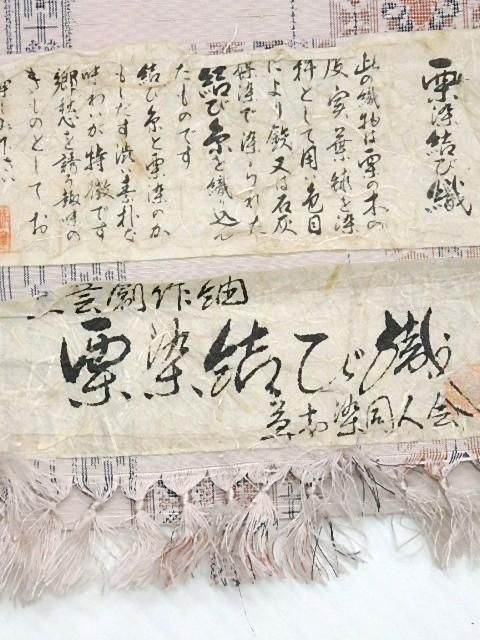 栗染結び織
此の織物は栗の木の
皮実葉を染
料として用い色目
により鉄又は石灰
媒染で染られた
結び糸を織り込ん
たものです
結び糸と栗染のか
もしだす渋い素朴な
味わいが特徴です
郷愁を誘う趣味の
きものとしてお
芸創作紬
栗染結び織
草木染同人会